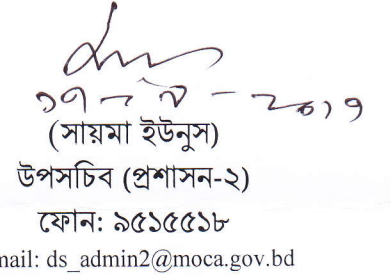 (সায়মা ইউনুস)
উপসচিব (প্রশাসন-২)
ফোন: ৯৫১৫৫১৮
mail: ds_admin2@moca.gov.bd